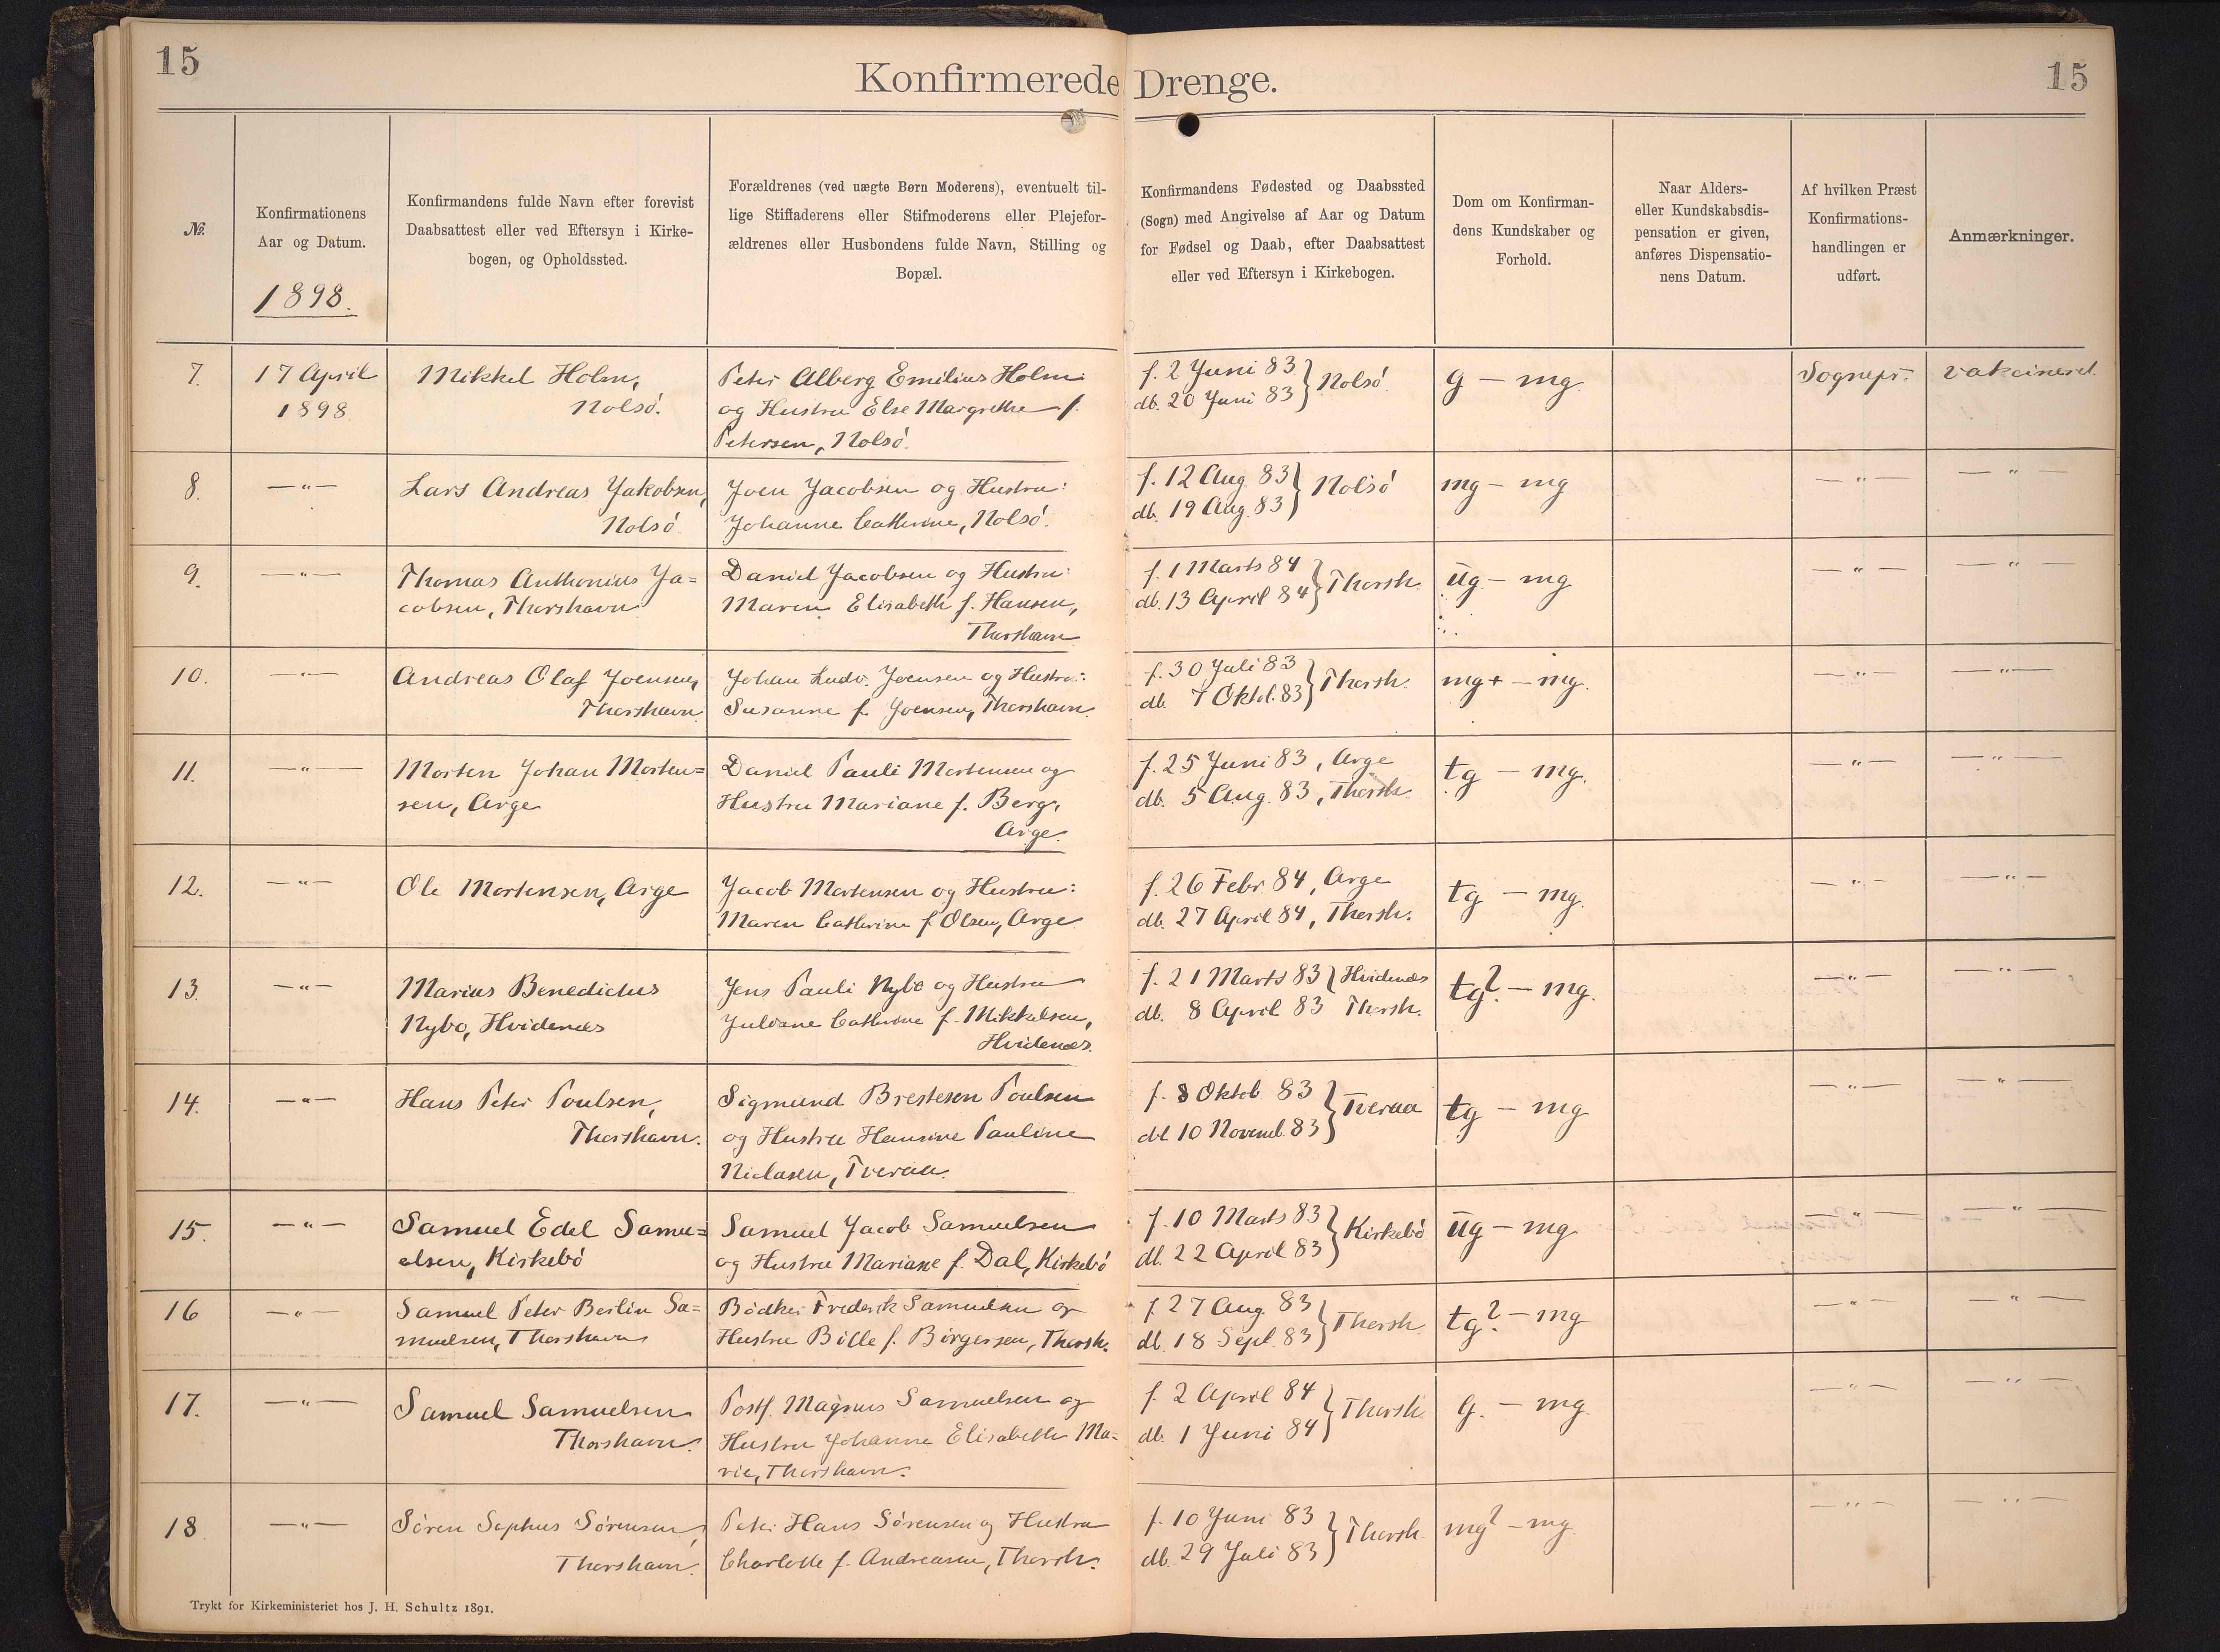 15
15
Konfirmerede Drenge.
№.
Konfirmationens
Aar og Datum.
1898.
Konfirmandens fulde Navn efter forevist
Daabsattest eller ved Eftersyn i Kirke-
bogen, og Opholdssted.
Forældrenes (ved uægte Børn Moderens), eventuelt til-
lige Stiffaderens eller Stifmoderens eller Plejefor-
ældrenes eller Husbondens fulde Navn, Stilling og
Bopæl.
Konfirmandens Fødested og Daabssted
(Sogn) med Angivelse af Aar og Datum
for Fødsel og Daab, efter Daabsattest
eller ved Eftersyn i Kirkebogen.
Dom om Konfirman-
dens Kundskaber og
Forhold.
Naar Alders-
eller Kundskabsdis-
pensation er given,
anføres Dispensatio-
nens Datum.
Af hvilken Præst
Konfirmations-
handlingen er
udført.
Anmærkninger.
7.
17 April
1898
Mikkel Holm,
Nolsö.
Peter Alberg Emilius Holm
og Hustru Else Margrethe f.
Petersen, Nolsö.
f. 2 Juni 83
db. 20 Juni 83 } Nolsö.
g — mg.
Sognepr.
vakcineret.
8.
— " —
Lars Andreas Jakobsen,
Nolsö
Joen Jacobsen og Hustru:
Johanne Cathrine, Nolsö.
f. 12 Aug 83
db. 19 Aug. 83 } Nolsö
mg — mg
— " —
— " —
9.
— " —
Thomas Anthonius Ja=
cobsen, Thorshavn
Daniel Jacobsen og Hustru:
Maren Elisabeth f. Hansen,
Thorshavn
f. 1 Marts 84
db. 13 April 84 } Thorsh.
ug — mg
— " —
— " —
10.
— " —
Andreas Olaf Joensen,
Thorshavn.
Johan Ludv. Joensen og Hustru:
Susanne f. Joensen, Thorshavn.
f. 30 Juli 83
db. 7 Oktob. 83 } Thorsh.
mg+ — mg.
— " —
— " —
11.
— " —
Morten Johan Morten=
sen, Arge
Daniel Pauli Mortensen og
Hustru Mariane f. Berg,
Arge.
f. 25 Juni 83, Arge
db. 5 Aug. 83, Thorsh.
tg — mg.
— " —
— " —
12.
— " —
Ole Mortensen, Arge
Jacob Mortensen og Hustru:
Maren Cathrine f. Olsen, Arge
f. 26 Febr. 84, Arge
db. 27 April 84, Thorsh.
tg — mg.
— " —
— " —
13.
— " —
Marius Benedictus
Nybo, Hvidenæs
Jens Pauli Nybo og Hustru
Juliane Cathrine f. Mikkelsen,
Hvidenæs.
f. 21 Marts 83 } Hvidenæs
db. 8 April 83 Thorsh.
tg? — mg.
— " —
— " —
14.
— " —
Hans Peter Poulsen,
Thorshavn.
Sigmund Brestesen Poulsen
og Hustru Hansine Pauline
Niclasen, Tveraa.
f. 8 Oktob 83
db. 10 Novemb. 83 } Tveraa
tg — mg
— " —
— " —
15.
— " —
Samuel Edel Samu=
elsen, Kirkebö
Samuel Jacob Samuelsen
og Hustru Mariane f. Dal, Kirkebö
f. 10 Marts 83
db. 22 April 83 } Kirkebö
ug — mg
— " —
— " —
16
— " —
Samuel Peter Berlin Sa=
muelsen, Thorshavn
Bödker Frederik Samuelsen og
Hustru Bille f. Birgersen, Thorsh.
f. 27 Aug. 83
db. 18 Sept. 83 } Thorsh
tg? — mg
— " —
— " —
17.
— " —
Samuel Samuelsen
Thorshavn.
Postf. Magnus Samuelsen og
Hustru Johanne Elisabeth Ma=
rie, Thorshavn.
f. 2 April 84
db. 1 Juni 84 } Thorsh.
g. — mg.
— " —
— " —
18
— " —
Sören Sophus Sörensen,
Thorshavn.
Peter Hans Sörensen og Hustru
Charlotte f. Andreasen, Thorsh.
f. 10 Juni 83
db. 29 Juli 83 } Thorsh.
mg? — mg.
— " —
— " —
Trykt for Kirkeministeriet hos J. H. Schultz 1891.